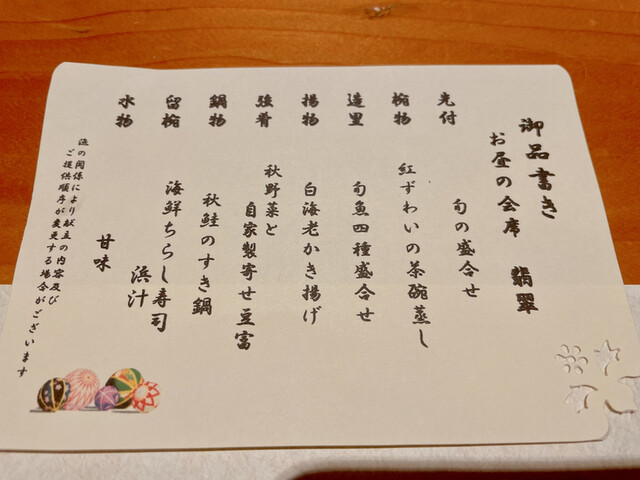 御品書き
お昼の会席 翡翠
先付 旬の盛合せ
椀物 紅ずわいの茶碗蒸し
造里 旬魚四種盛合せ
揚物 白海老かき揚げ
強肴 秋野菜と
自家製寄せ豆富
鍋物 秋鮭のすき鍋
留椀 海鮮ちらし寿司
浜汁
水物 甘味
漁の関係により献立の内容及び
ご提供順序が変更する場合がございます